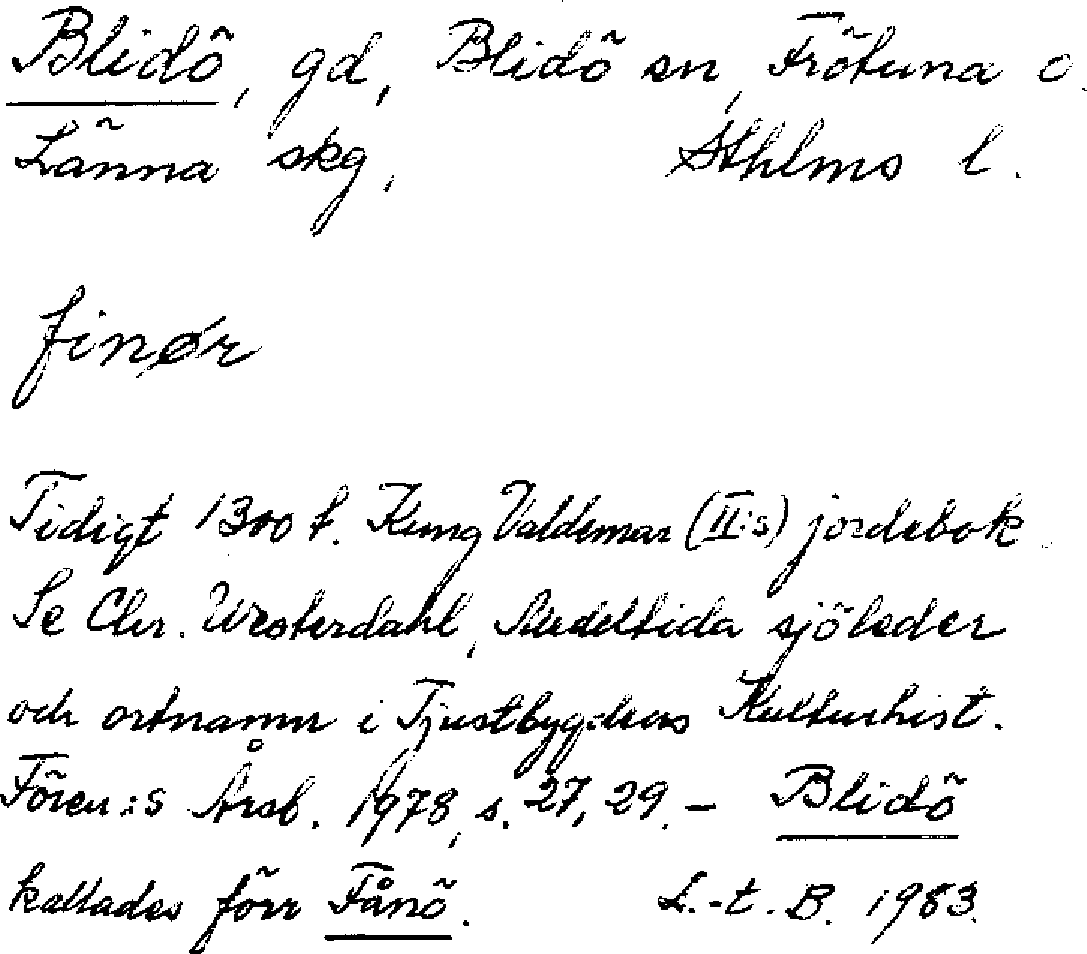 Blidö, gd, Blidö sn, Frötuna o.
Länna skg, Sthlms l.
finør
Tidigt 1300 t. Kung Valdemar (II:s) jordebok.
Se Chr. Westerdahl, Medeltida sjöleder
och ortnamn i Tjustbygdens Kulturhist.
Fören:s Årsb. 1978, s. 27, 29. – Blidö
kallades förr Fånö. L.-t. B. 1983.